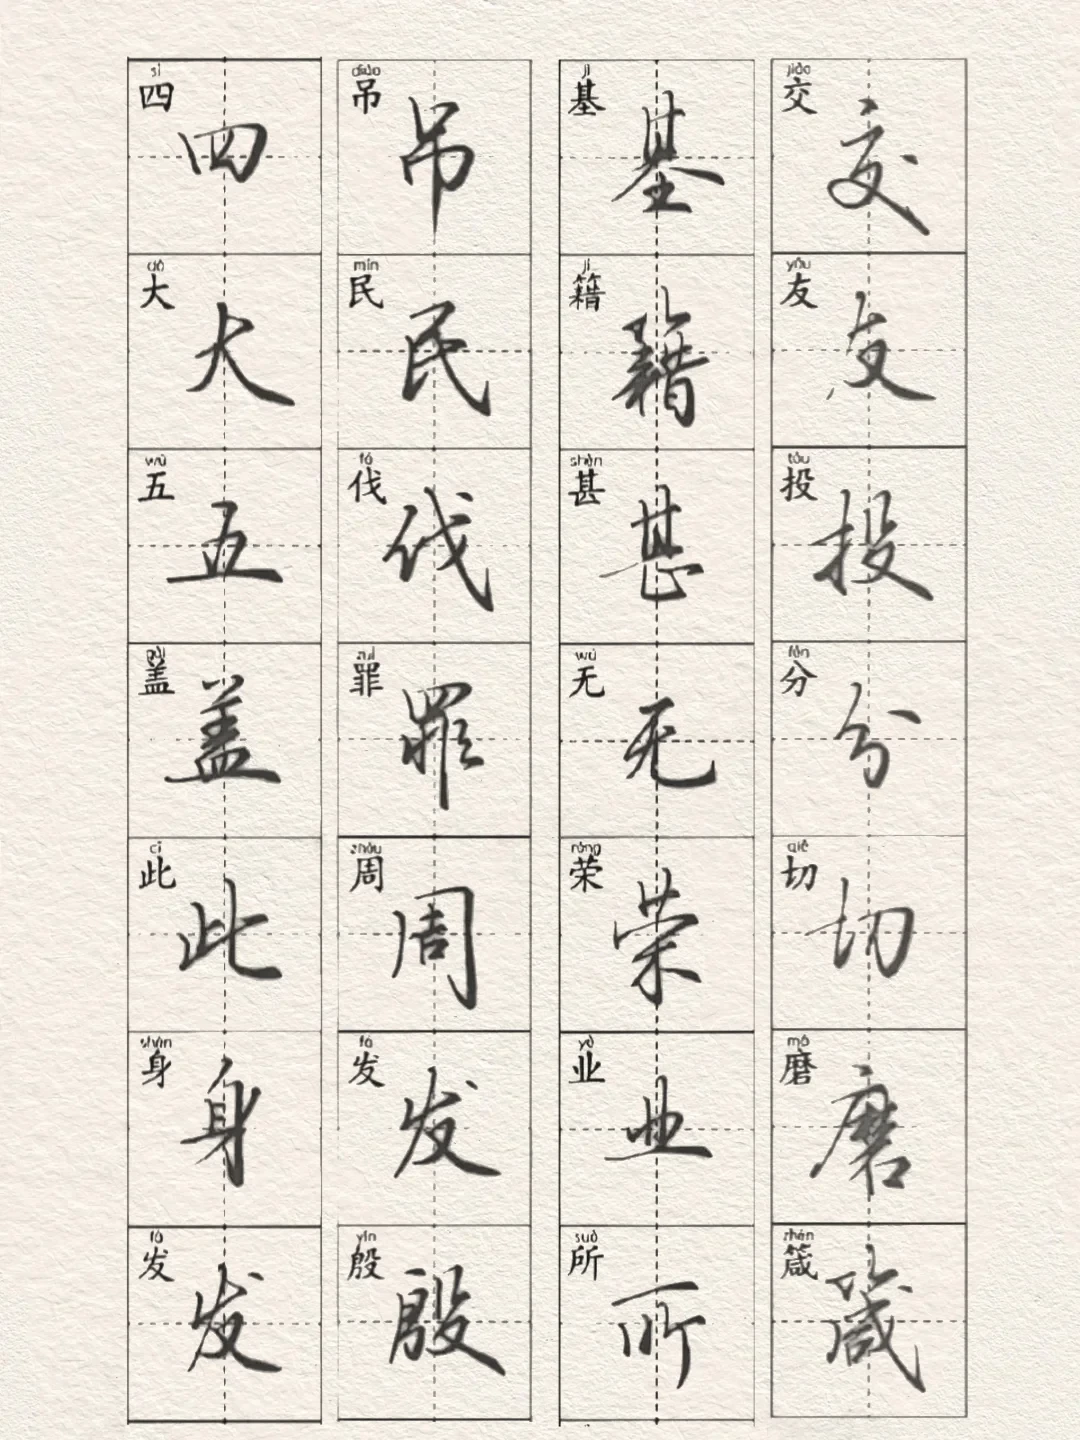 sì
四 四
dà
大 大
wǔ
五 五
gài
盖 盖
cǐ
此 此
shēn
身 身
fà
发 发
diào
吊 吊
mín
民 民
fá
伐 伐
zuì
罪 罪
zhōu
周 周
fā
发 发
yīn
殷 殷
jī
基 基
jí
籍 籍
shèn
甚 甚
wú
无 无
róng
荣 荣
yè
业 业
suǒ
所 所
jiāo
交 交
yǒu
友 友
tóu
投 投
fēn
分 分
qiē
切 切
mó
磨 磨
zhēn
箴 箴